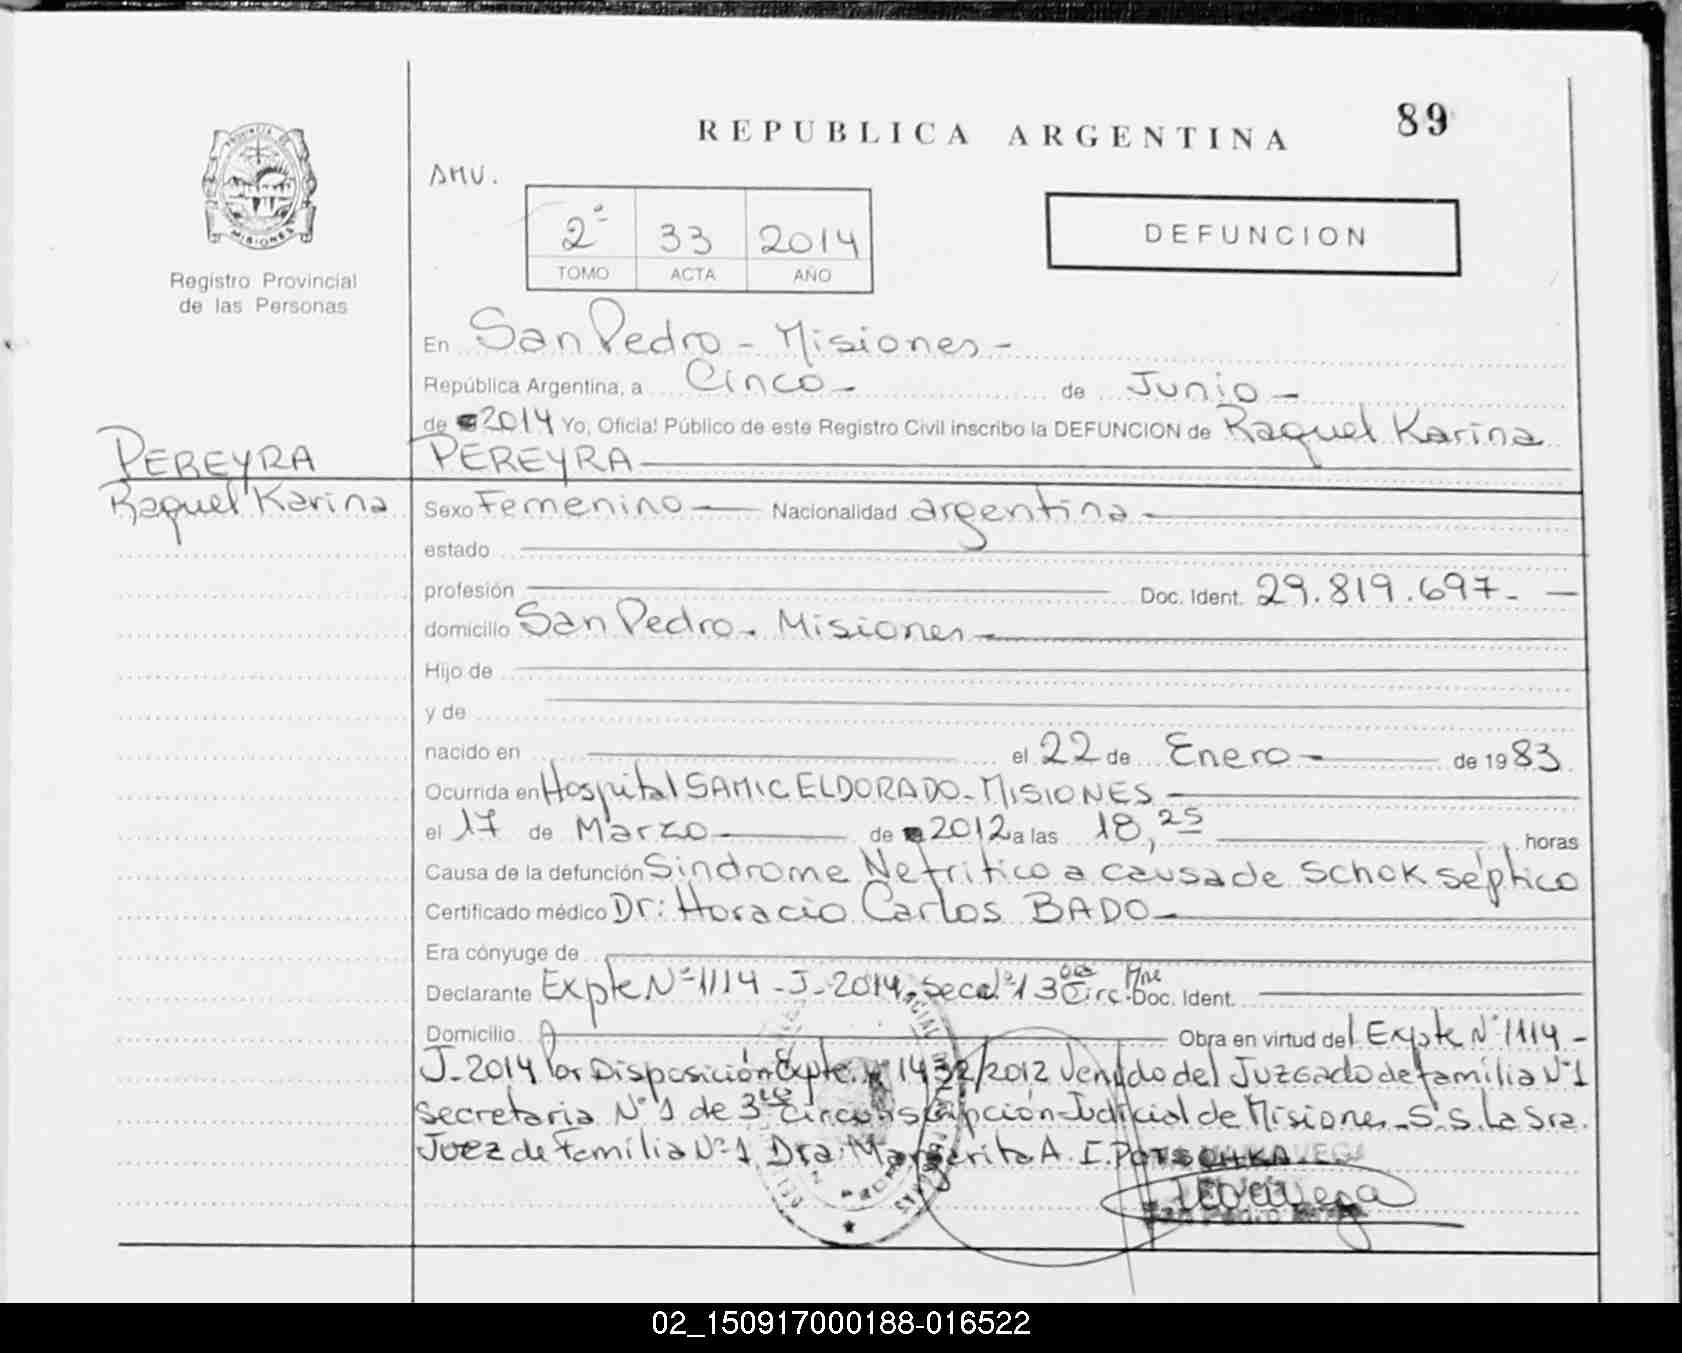 89
REPUBLICA ARGENTINA
PROVINCIA DE
MISIONES
Registro Provincial
de las Personas
AMU.
2ª 33 2014
TOMO ACTA AÑO
DEFUNCION
En San Pedro - Misiones -
República Argentina, a Cinco - de Junio -
de 2014 Yo, Oficial Público de este Registro Civil inscribo la DEFUNCION de Raquel Karina
PEREYRA
PEREYRA
Raquel Karina
Sexo Femenino Nacionalidad argentina -
estado
profesión Doc. Ident. 29.819.697.-
domicilio San Pedro - Misiones
Hijo de
y de
nacido en el 22 de Enero - de 1983
Ocurrida en Hospital SAMIC ELDORADO - MISIONES
el 17 de Marzo de 2012 a las 18,25 horas
Causa de la defunción Sindrome Nefritico a causa de Schok séptico
Certificado médico Dr: Horacio Carlos BADO -
Era cónyuge de
Declarante Expte Nº 1114 - J - 2014, Doc. Ident.
Domicilio Obra en virtud del Expte Nº 1114 -
J. 2014 por Disposición Expte. 1432/2012 Venido del Juzgado de familia Nº 1
Secretaria Nº 1 de 3ra Circunscripción Judicial de Misiones - S.S. La Sra.
Juez de Familia Nº 1 Dra: Margarita A. I. POTSCHKA.
VEGA
San Pedro
02_150917000188-016522